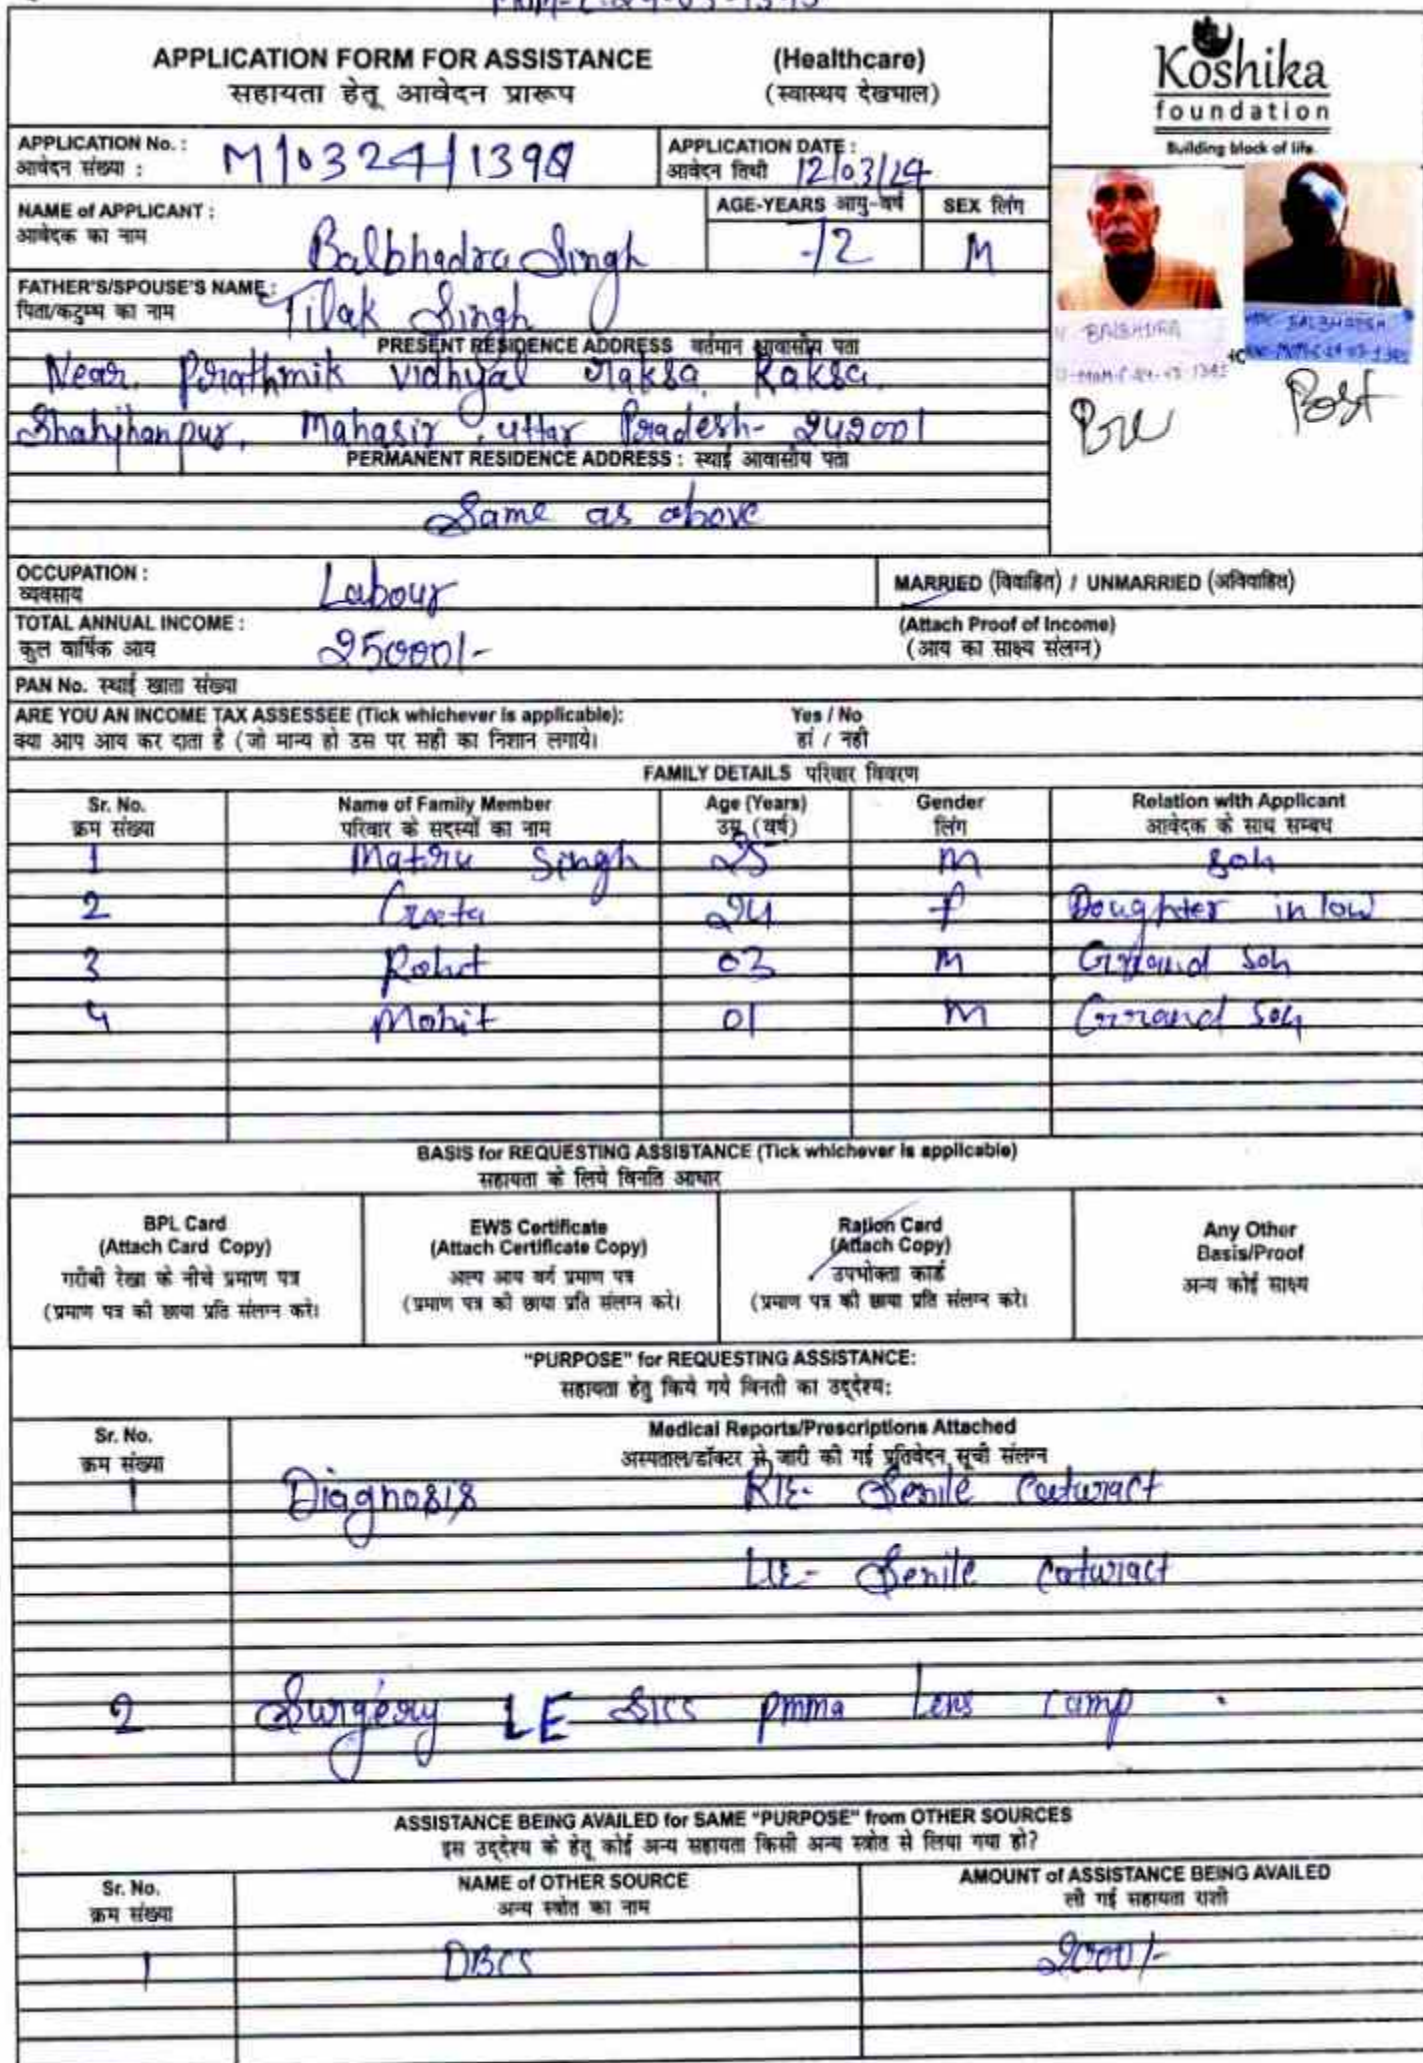 APPLICATION FORM FOR ASSISTANCE (Healthcare)
सहायता हेतू आवेदन प्रारूप (स्वास्थय देखभाल)
Koshika
foundation
Building block of life.
APPLICATION No. :
आवेदन संख्या :
M/0324/1398
APPLICATION DATE :
आवेदन तिथी 12/03/24
NAME of APPLICANT :
आवेदक का नाम
Balbhadra Singh
AGE-YEARS आयु-वर्ष
72
SEX लिंग
M
FATHER'S/SPOUSE'S NAME :
पिता/कटुम्ब का नाम
Tilak Singh
PRESENT RESIDENCE ADDRESS वर्तमान आवासीय पता
Near. Prathmik Vidhyal Raksa, Raksa.
Shahjhanpur, Mahasir, uttar Pradesh- 242001
PERMANENT RESIDENCE ADDRESS : स्थाई आवासीय पता
Same as above
Pre
Post
OCCUPATION :
व्यवसाय
Labour
MARRIED (विवाहित) / UNMARRIED (अविवाहित)
TOTAL ANNUAL INCOME :
कुल वार्षिक आय
25000/-
(Attach Proof of Income)
(आय का साक्ष्य संलग्न)
PAN No. स्थाई खाता संख्या
ARE YOU AN INCOME TAX ASSESSEE (Tick whichever is applicable): Yes / No
क्या आप आय कर दाता है (जो मान्य हो उस पर सही का निशान लगाये। हां / नही
FAMILY DETAILS परिवार विवरण
Sr. No. Name of Family Member Age (Years) Gender Relation with Applicant
क्रम संख्या परिवार के सदस्यों का नाम उम्र (वर्ष) लिंग आवेदक के साथ सम्बध
1 Matru Singh 25 M Soh
2 Geeta 24 f Doughter in low
3 Rohit 03 M Grraund Soh
4 Mohit 01 M Grraund Soh
BASIS for REQUESTING ASSISTANCE (Tick whichever is applicable)
सहायता के लिये विनति आधार
BPL Card
(Attach Card Copy)
गरीबी रेखा के नीचे प्रमाण पत्र
(प्रमाण पत्र की छाया प्रति संलग्न करे।
EWS Certificate
(Attach Certificate Copy)
अल्प आय वर्ग प्रमाण पत्र
(प्रमाण पत्र की छाया प्रति संलग्न करे।
Ration Card
(Attach Copy)
उपभोक्ता कार्ड
(प्रमाण पत्र की छाया प्रति संलग्न करे।
Any Other
Basis/Proof
अन्य कोई साक्ष्य
"PURPOSE" for REQUESTING ASSISTANCE:
सहायता हेतु किये गये विनती का उद्देश्य:
Sr. No. Medical Reports/Prescriptions Attached
क्रम संख्या अस्पताल/डॉक्टर से जारी की गई प्रतिवेदन सूची संलग्न
1 Diagnosis RE- Senile Cataract
LE- Senile Cataract
2 Surgery LE SICS pmma Lens Camp
ASSISTANCE BEING AVAILED for SAME "PURPOSE" from OTHER SOURCES
इस उद्देश्य के हेतू कोई अन्य सहायता किसी अन्य स्त्रोत से लिया गया हो?
Sr. No. NAME of OTHER SOURCE AMOUNT of ASSISTANCE BEING AVAILED
क्रम संख्या अन्य स्त्रोत का नाम ली गई सहायता राशी
1 DBCS 2000/-